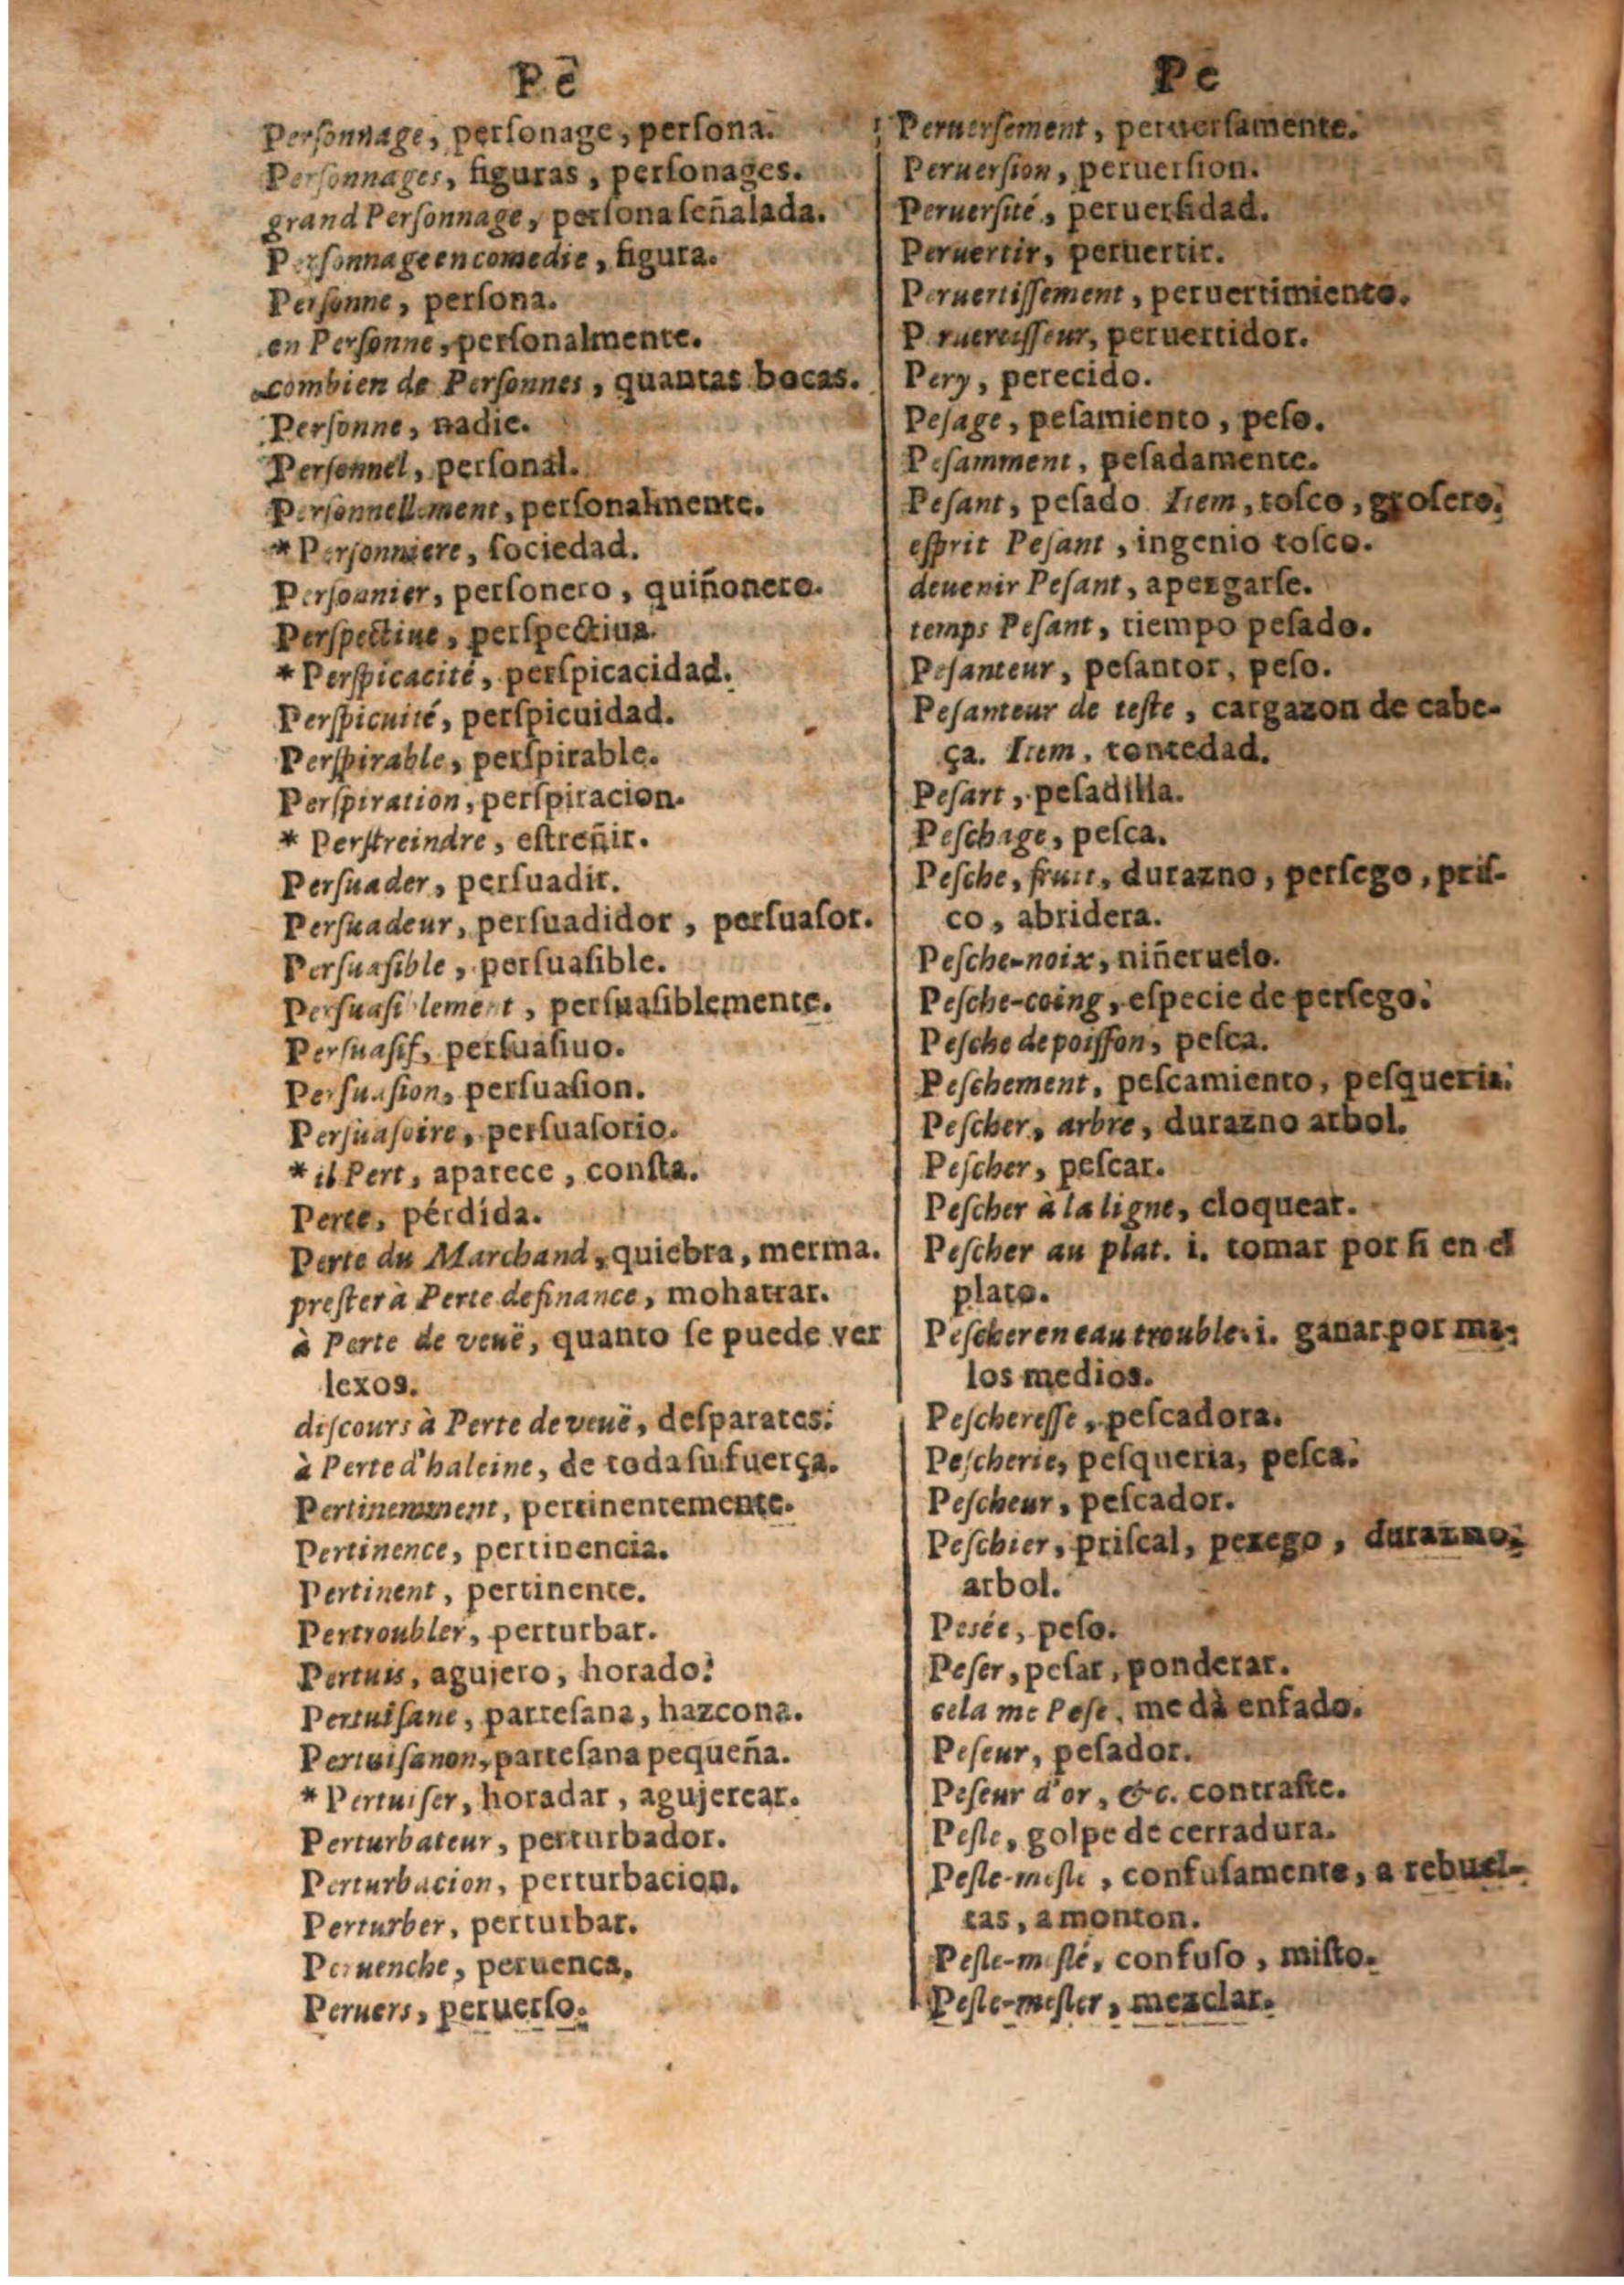 Pe
Perſonnage, perſonage, perſona.
Perſonnages, figuras, perſonages.
grand Perſonnage, perſona ſeñalada.
Perſonnage en comedie, figura.
Perſonne, perſona.
en Perſonne, perſonalmente.
combien de Perſonnes, quantas bocas.
Perſonne, nadie.
Perſonnel, perſonal.
Perſonnellement, perſonalmente.
* Perſonniere, ſociedad.
Perſonnier, perſonero, quiñonero.
Perſpectiue, perſpectiua.
* Perſpicacité, perſpicacidad.
Perſpicuité, perſpicuidad.
Perſpirable, perſpirable.
Perſpiration, perſpiracion.
* Perſtreindre, eſtreñir.
Perſuader, perſuadir.
Perſuadeur, perſuadidor, perſuaſor.
Perſuaſible, perſuaſible.
Perſuaſiblement, perſuaſiblemente.
Perſuaſif, perſuaſiuo.
Perſuaſion, perſuaſion.
Perſuaſoire, perſuaſorio.
* il Pert, aparece, conſta.
Perte, pérdida.
Perte du Marchand, quiebra, merma.
preſter à Perte de finance, mohatrar.
à Perte de veuë, quanto ſe puede ver
lexos.
diſcours à Perte de veuë, deſparates.
à Perte d'haleine, de toda ſu fuerça.
Pertinemment, pertinentemente.
Pertinence, pertinencia.
Pertinent, pertinente.
Pertroubler, perturbar.
Pertuis, agujero, horado.
Pertuiſane, parteſana, hazcona.
Pertuiſanon, parteſana pequeña.
* Pertuiſer, horadar, agujerear.
Perturbateur, perturbador.
Perturbacion, perturbacion.
Perturber, perturbar.
Peruenche, peruenca.
Peruers, peruerſo.
Pe
Peruerſement, peruerſamente.
Peruerſion, peruerſion.
Peruerſité, peruerſidad.
Peruertir, peruertir.
Peruertiſſement, peruertimiento.
Peruertiſſeur, peruertidor.
Pery, perecido.
Peſage, peſamiento, peſo.
Peſamment, peſadamente.
Peſant, peſado. Item, toſco, groſero.
eſprit Peſant, ingenio toſco.
deuenir Peſant, apezgarſe.
temps Peſant, tiempo peſado.
Peſanteur, peſantor, peſo.
Peſanteur de teſte, cargazon de cabe-
ça. Item, tontedad.
Peſart, peſadilla.
Peſchage, peſca.
Peſche, fruit, durazno, perſego, priſ-
co, abridera.
Peſche-noix, niñeruelo.
Peſche-coing, eſpecie de perſego.
Peſche de poiſſon, peſca.
Peſchement, peſcamiento, peſqueria.
Peſcher, arbre, durazno arbol.
Peſcher, peſcar.
Peſcher à la ligne, cloquear.
Peſcher au plat. i. tomar por ſi en el
plato.
Peſcher en eau trouble. i. ganar por ma-
los medios.
Peſchereſſe, peſcadora.
Peſcherie, peſqueria, peſca.
Peſcheur, peſcador.
Peſchier, priſcal, pexego, durazno,
arbol.
Pesée, peſo.
Peſer, peſar, ponderar.
cela me Peſe, me dà enfado.
Peſeur, peſador.
Peſeur d'or, &c. contraſte.
Peſle, golpe de cerradura.
Peſle-meſle, confuſamente, a rebuel-
tas, a monton.
Peſle-meſlé, confuſo, miſto.
Peſle-meſler, mezclar.